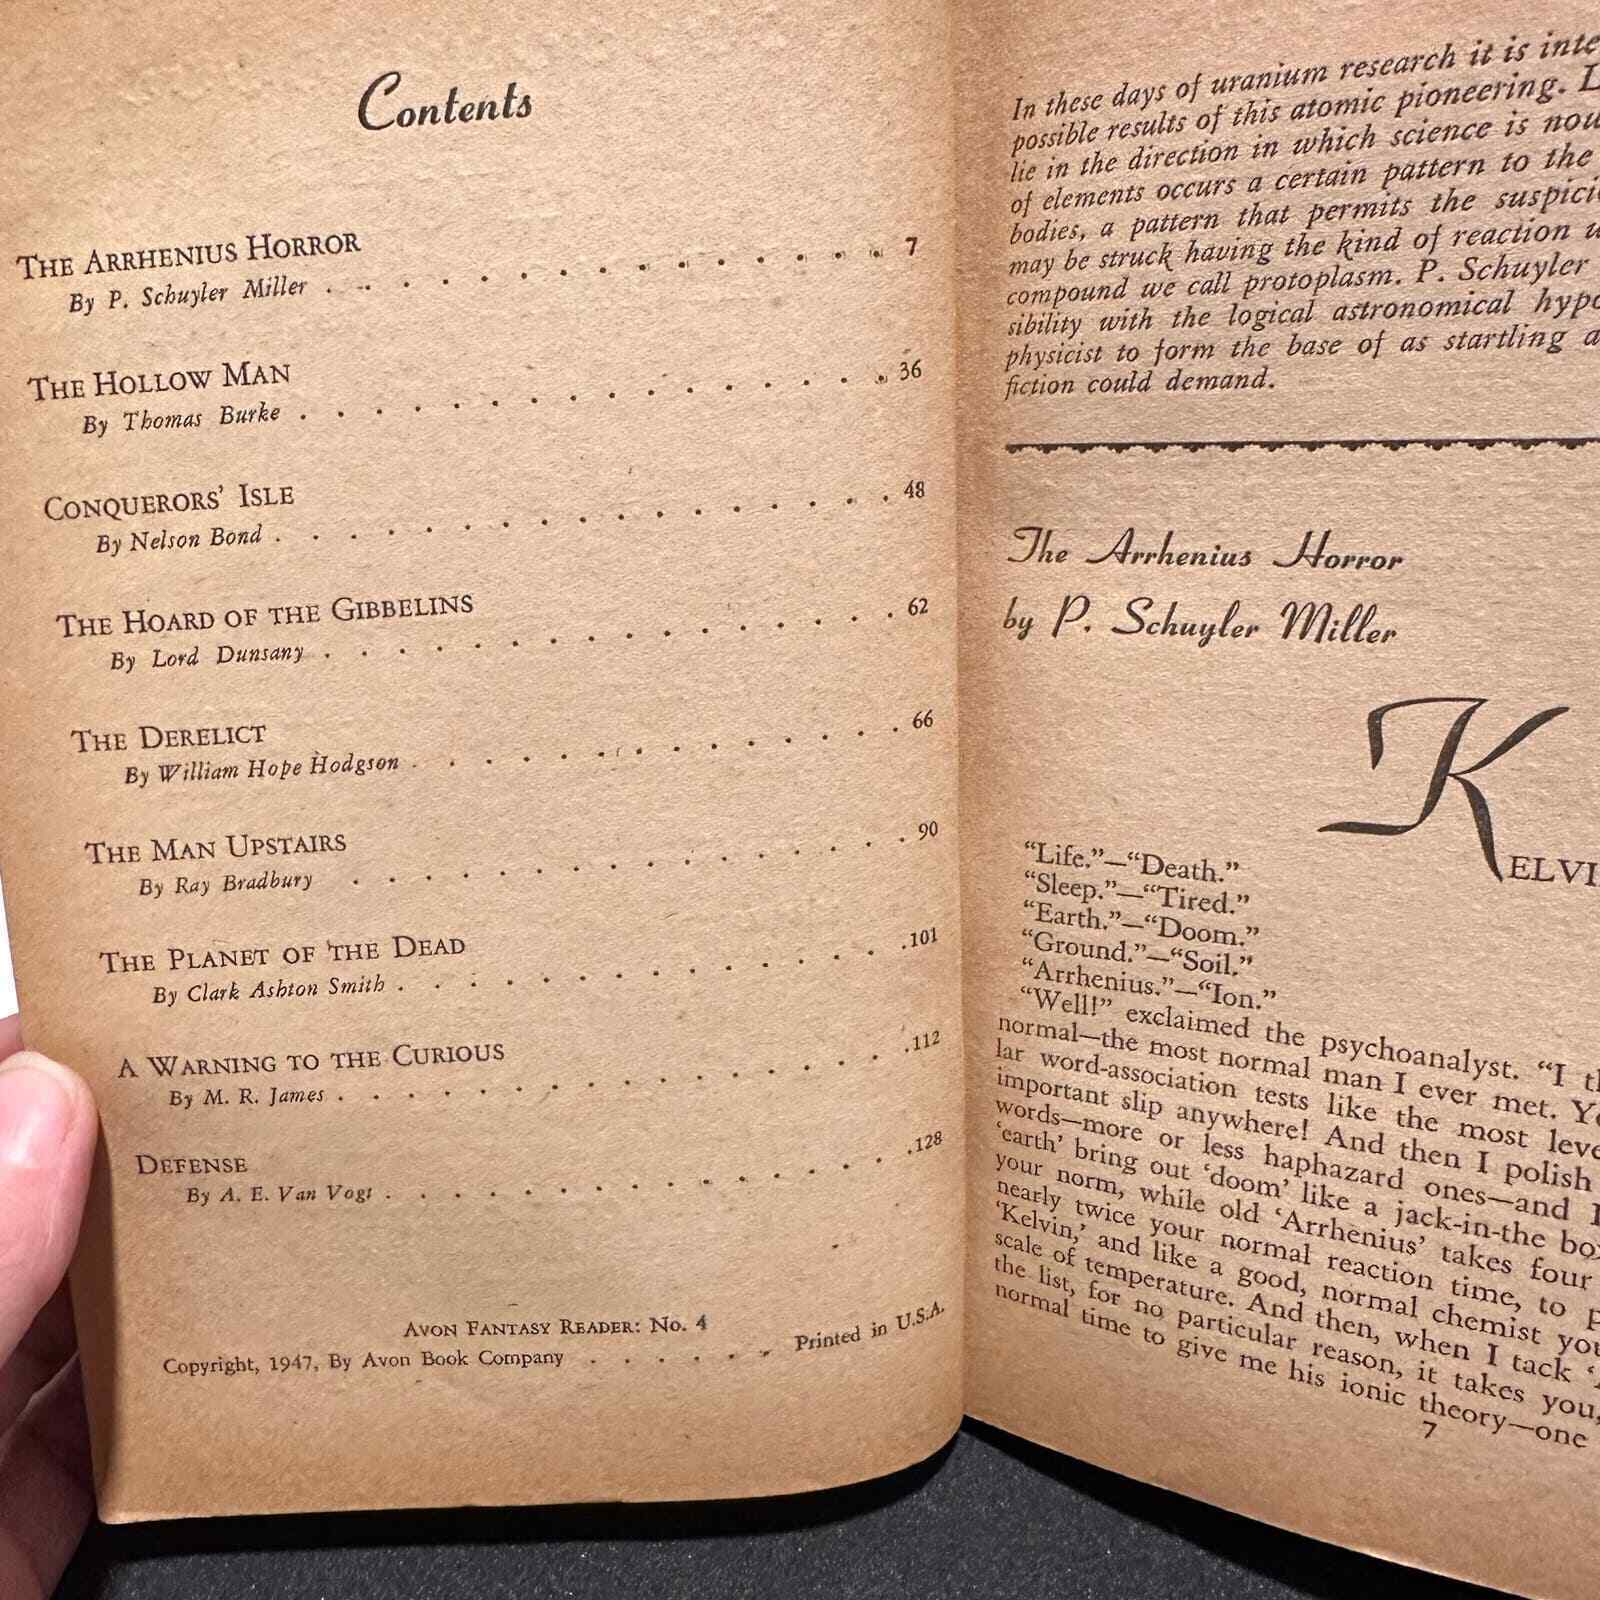 Contents
THE ARRHENIUS HORROR
By P. Schuyler Miller . . . . . . . . . . . . . . . 7
THE HOLLOW MAN
By Thomas Burke . . . . . . . . . . . . . . . . 36
CONQUERORS' ISLE
By Nelson Bond . . . . . . . . . . . . . . . . . 48
THE HOARD OF THE GIBBELINS
By Lord Dunsany . . . . . . . . . . . . . . . . 62
THE DERELICT
By William Hope Hodgson . . . . . . . . . . . . . 66
THE MAN UPSTAIRS
By Ray Bradbury . . . . . . . . . . . . . . . 90
THE PLANET OF THE DEAD
By Clark Ashton Smith . . . . . . . . . . . . . . 101
A WARNING TO THE CURIOUS
By M. R. James . . . . . . . . . . . . . . . . 112
DEFENSE
By A. E. Van Vogt . . . . . . . . . . . . . . . 128
AVON FANTASY READER: NO. 4
Copyright, 1947, By Avon Book Company . . . . . . Printed in U.S.A.
In these days of uranium research it is
possible results of this atomic pioneering.
lie in the direction in which science is
of elements occurs a certain pattern to the
bodies, a pattern that permits the
may be struck having the kind of reaction
compound we call protoplasm. P. Schuyler
sibility with the logical astronomical
physicist to form the base of as startling
fiction could demand.
The Arrhenius Horror
by P. Schuyler Miller
KELVI
"Life."—"Death."
"Sleep."—"Tired."
"Earth."—"Doom."
"Ground."—"Soil."
"Arrhenius."—"Ion."
"Well!" exclaimed the psychoanalyst. "I
normal—the most normal man I ever met.
lar word-association tests like the most
important slip anywhere! And then I polish
words—more or less haphazard ones—and
'earth' bring out 'doom' like a jack-in-the
your norm, while old 'Arrhenius' takes four
nearly twice your normal reaction time, to
'Kelvin,' and like a good, normal chemist
scale of temperature. And then, when I tack
the list, for no particular reason, it takes you,
normal time to give me his ionic theory—one
7